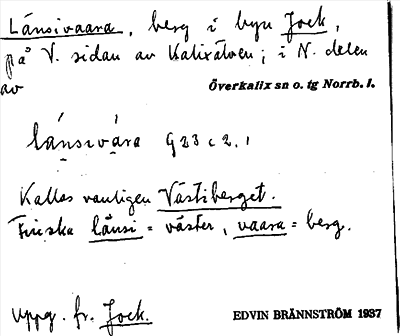 Länsivaara, berg i byn Jock,
på V. sidan av Kalixälven; i N. delen
av Överkalix sn o. tg Norrb. l.
lánsıvára G 23 c 2. 1
Kallas vanligen Västiberget.
Finska länsi = väster, vaara = berg.
Uppg. fr. Jock. EDVIN BRÄNNSTRÖM 1937